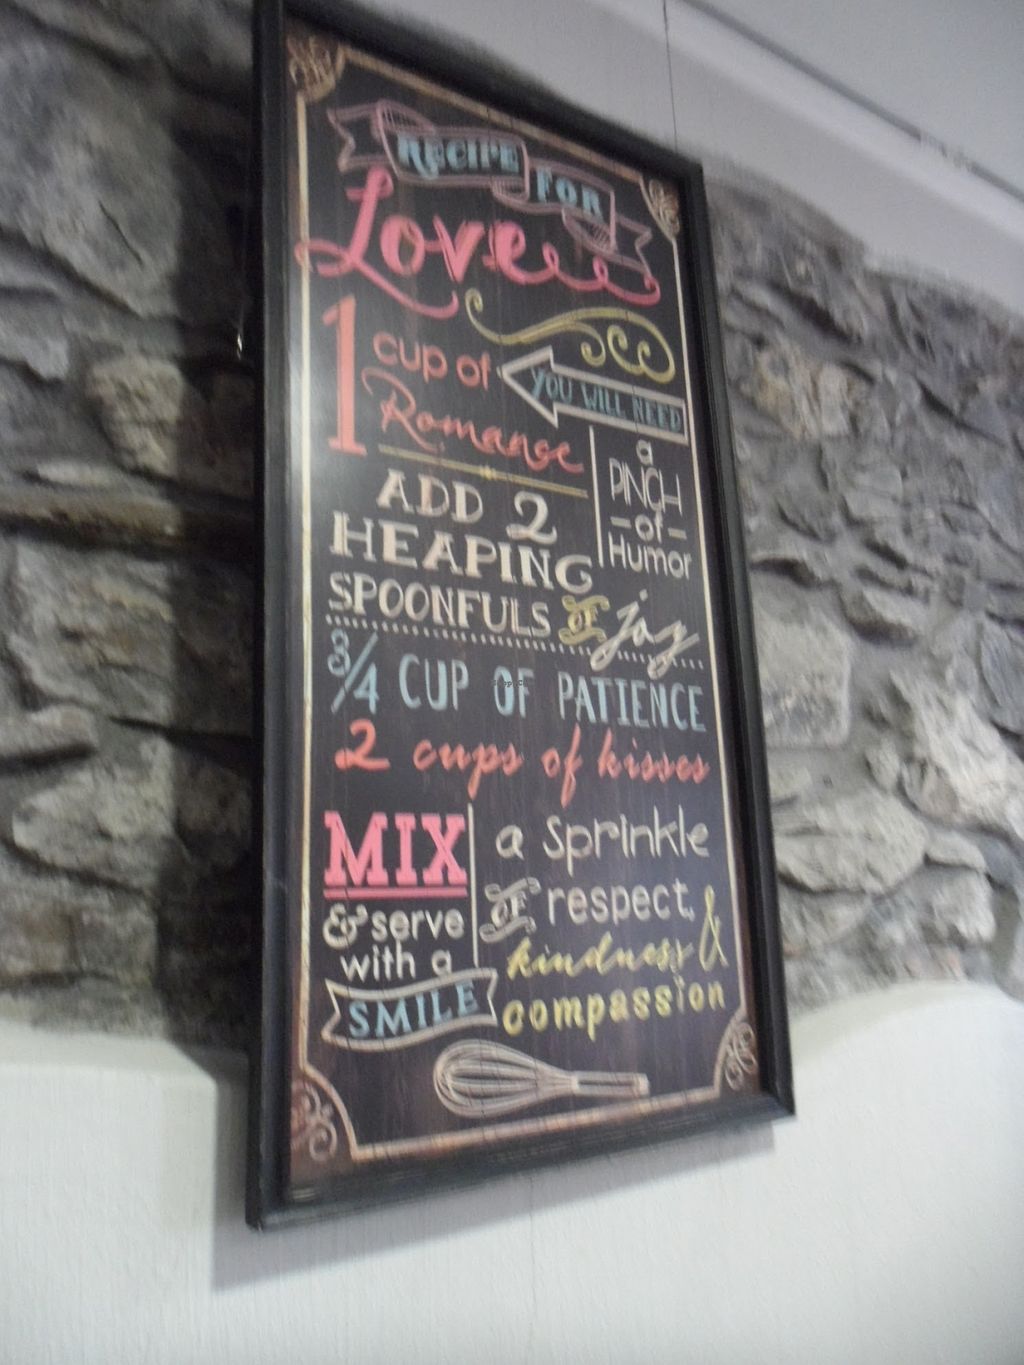 RECIPE FOR
Love
1 cup of
Romance
YOU WILL NEED
a
PINCH
-of-
Humor
ADD 2
HEAPING
SPOONFULS OF joy
3/4 CUP OF PATIENCE
2 cups of kisses
MIX
& serve
with a
SMILE
a sprinkle
OF respect,
kindness &
compassion